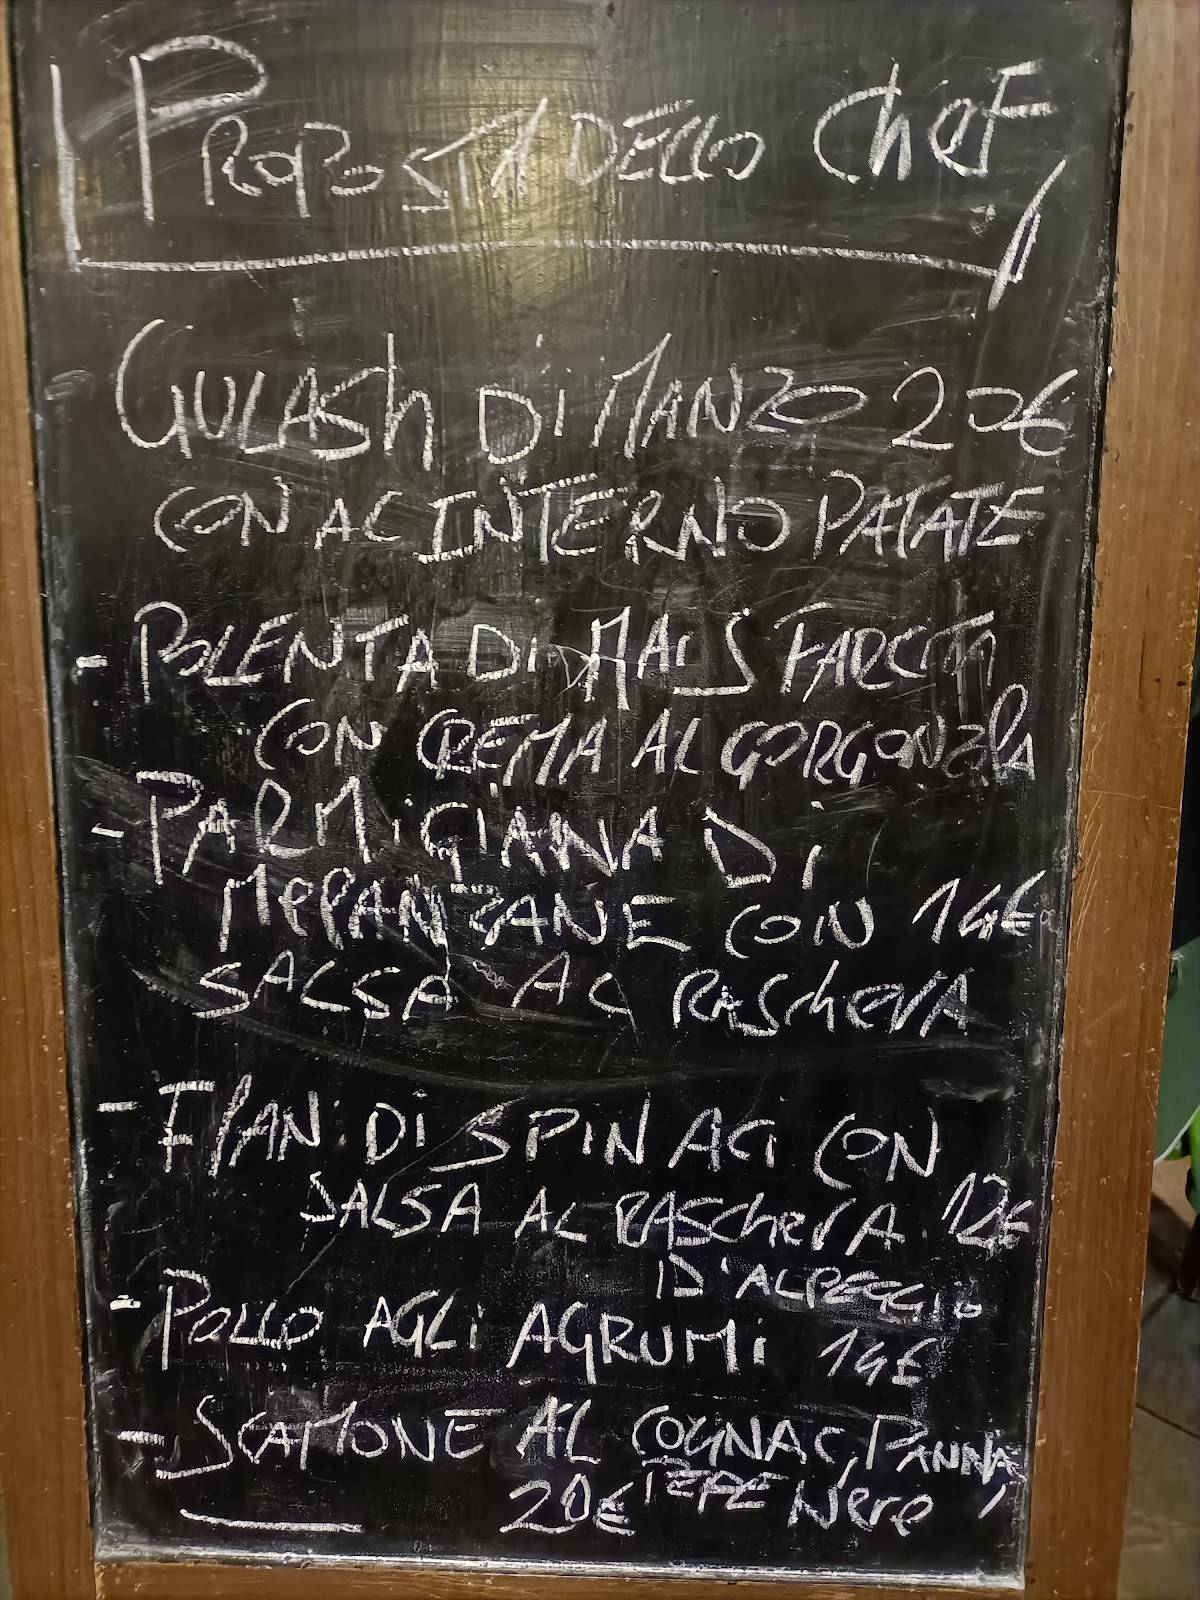 PROPOSTA DELLO CheF
- GULASh Di MANZO 20€
CON AL INTERNO PATATE
- POLENTA Di MAIS FARCITA
CON CREMA AL GORGONZOlA
- PARMiGiANA Di
MePANZANE CON 14€
SALSA AL RASCheRA
- FlAN Di SPINACi CON
SALSA AL RASCheRA 12€
D'ALPEGGio
- POLLO AGLi AGRUMi 14€
- SCAMONE AL COGNAC, PANNA,
20€ PEPE Nero